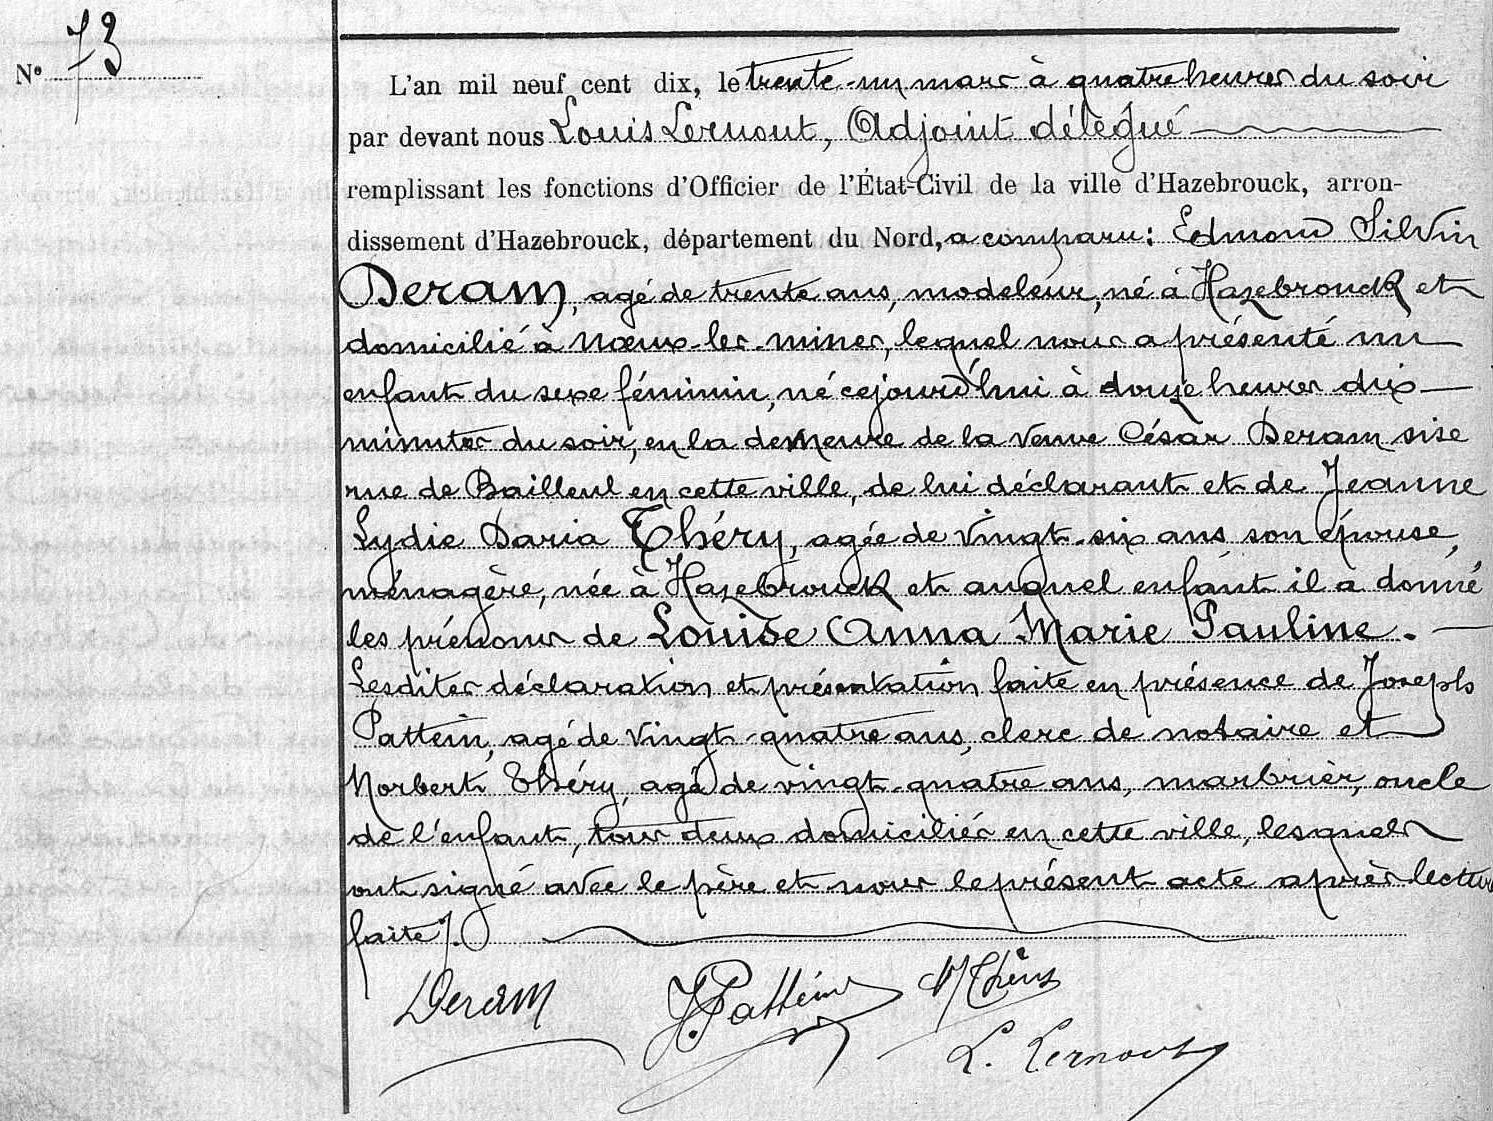 N° 73
L'an mil neuf cent dix, le trente-un mars à quatre heures du soir
par devant nous Louis Lernout, Adjoint délégué
remplissant les fonctions d'Officier de l'État-Civil de la ville d'Hazebrouck, arron-
dissement d'Hazebrouck, département du Nord, a comparu: Edmond Silvin
Deram, agé de trente ans, modeleur, né à Hazebrouck et
domicilié à Noeux-les-mines, lequel nous a présenté un
enfant du sexe féminin, né cejourd'hui à douze heures dix
minutes du soir, en la demeure de la veuve César Deram sise
rue de Bailleul en cette ville, de lui déclarant et de Jeanne
Lydie Daria Théry, agée de vingt-six ans son épouse,
ménagère, née à Hazebrouck et auquel enfant il a donné
les prénoms de Louise Anna Marie Pauline.
Lesdites déclaration et présentation faite en présence de Joseph
Pattein, agé de vingt-quatre ans, clerc de notaire et
Norbert Théry, agé de vingt-quatre ans, marbrier, oncle
de l'enfant, tous deux domiciliés en cette ville, lesquels
ont signé avec le père et nous le présent acte après lecture
faite/.
Deram J. Pattein N Théry
L. Lernout